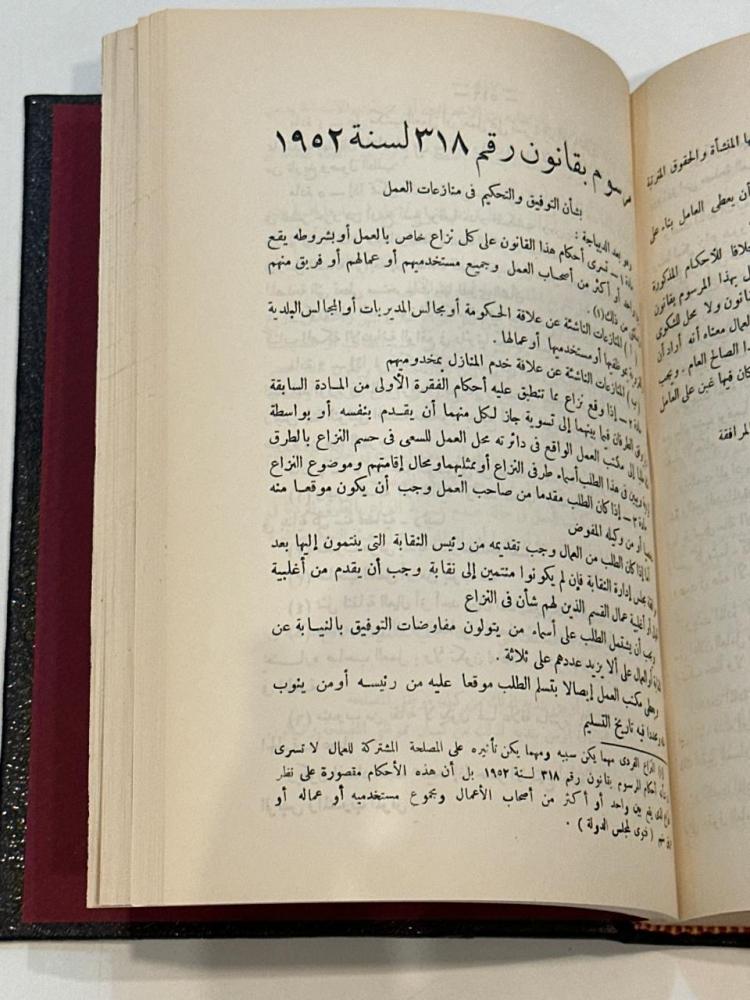 مرسوم بقانون رقم ٣١٨ لسنة ١٩٥٢
بشأن التوفيق والتحكيم فى منازعات العمل
وهو بعد الديباجة :
مادة ١ — تسرى أحكام هذا القانون على كل نزاع خاص بالعمل أو بشروطه يقع
واحد أو أكثر من أصحاب العمل وجميع مستخدميهم أو عمالهم أو فريق منهم
من ذلك (١) .
( أ ) المنازعات الناشئة عن علاقة الحكومة أو مجالس المديريات أو المجالس البلدية
بموظفيها أو مستخدميها أو عمالها .
(ب) المنازعات الناشئة عن علاقة خدم المنازل بمخدوميهم
مادة ٢ — إذا وقع نزاع مما تنطبق عليه أحكام الفقرة الأولى من المادة السابقة
الطرفان فيما بينهما إلى تسوية جاز لكل منهما أن يقدم بنفسه أو بواسطة
إلى مكتب العمل الواقع فى دائرته محل العمل للسعى فى حسم النزاع بالطرق
فى هذا الطلب أسماء طرفى النزاع أو ممثليهما ومحال إقامتهم وموضوع النزاع
مادة ٣ — إذا كان الطلب مقدما من صاحب العمل وجب أن يكون موقعا منه
أو من وكيله المفوض
أما إذا كان الطلب من العمال وجب تقديمه من رئيس النقابة التى ينتمون إليها بعد
مجلس إدارة النقابة فإن لم يكونوا منتمين إلى نقابة وجب أن يقدم من أغلبية
أو أغلبية عمال القسم الذين لهم شأن فى النزاع
ويجب أن يشتمل الطلب على أسماء من يتولون مفاوضات التوفيق بالنيابة عن
أو العمال على ألا يزيد عددهم على ثلاثة .
ويعطى مكتب العمل إيصالا بتسلم الطلب موقعا عليه من رئيسه أو من ينوب
فيه تاريخ التسليم
(١) النزاع الفردى مهما يكن سببه ومهما يكن تأثيره على المصلحة المشتركة للعمال لا تسرى
أحكام المرسوم بقانون رقم ٣١٨ لسنة ١٩٥٢ بل أن هذه الأحكام مقصورة على نظر
يقع بين واحد أو أكثر من أصحاب الأعمال ومجموع مستخدميه أو عماله أو
منهم ( فتوى لمجلس الدولة ) .
المنشأة والحقوق المترتبة
أن يعطى العامل بناء على
للأحكام المذكورة
بهذا المرسوم بقانون
ولا محل للشكوى
معناه أنه أراد أن
الصالح العام . ويجب
كان فيها غبن على العامل